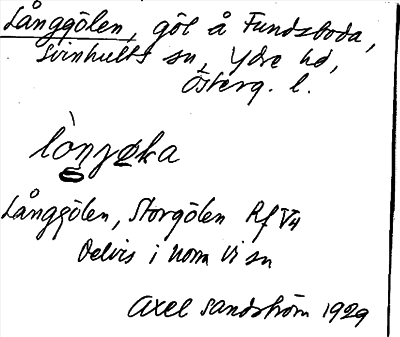 Långgölen, göl å Fundsboda,
Svinhults sn, Ydre hd,
Österg. l.
lòŋɟøka
Långgölen, Storgölen Rf V4
Delvis i Norra Vi sn
Axel Sandström 1929